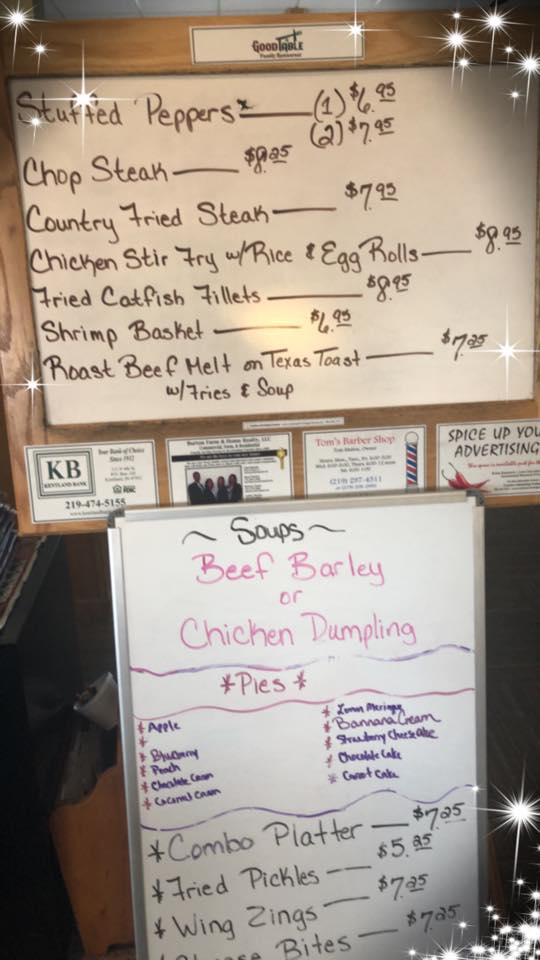 GOOD TABLE
Family Restaurant
Stuffed Peppers* — (1) $6.95
(2) $7.95
Chop Steak — $8.25
Country Fried Steak — $7.95
Chicken Stir Fry w/Rice & Egg Rolls — $8.95
Fried Catfish Fillets — $8.95
Shrimp Basket — $6.95
Roast Beef Melt on Texas Toast — $7.25
w/Fries & Soup
KB
KENTLAND BANK
Your Bank of Choice
Since 1912
219-474-5155
Burton Farm & Home Realty, LLC
Tom's Barber Shop
(219) 297-4511
SPICE UP YOU
ADVERTISING
~ Soups ~
Beef Barley
or
Chicken Dumpling
*Pies*
* Apple
*
* Bluberry
* Peach
* Chocolate Cream
* Coconut Cream
* Lemon Meringue
* Bannana Cream
* Strawberry Cheesecake
* Chocolate Cake
* Carrot Cake
*Combo Platter — $7.25
*Fried Pickles — $5.25
*Wing Zings — $7.25
Bites — $7.25